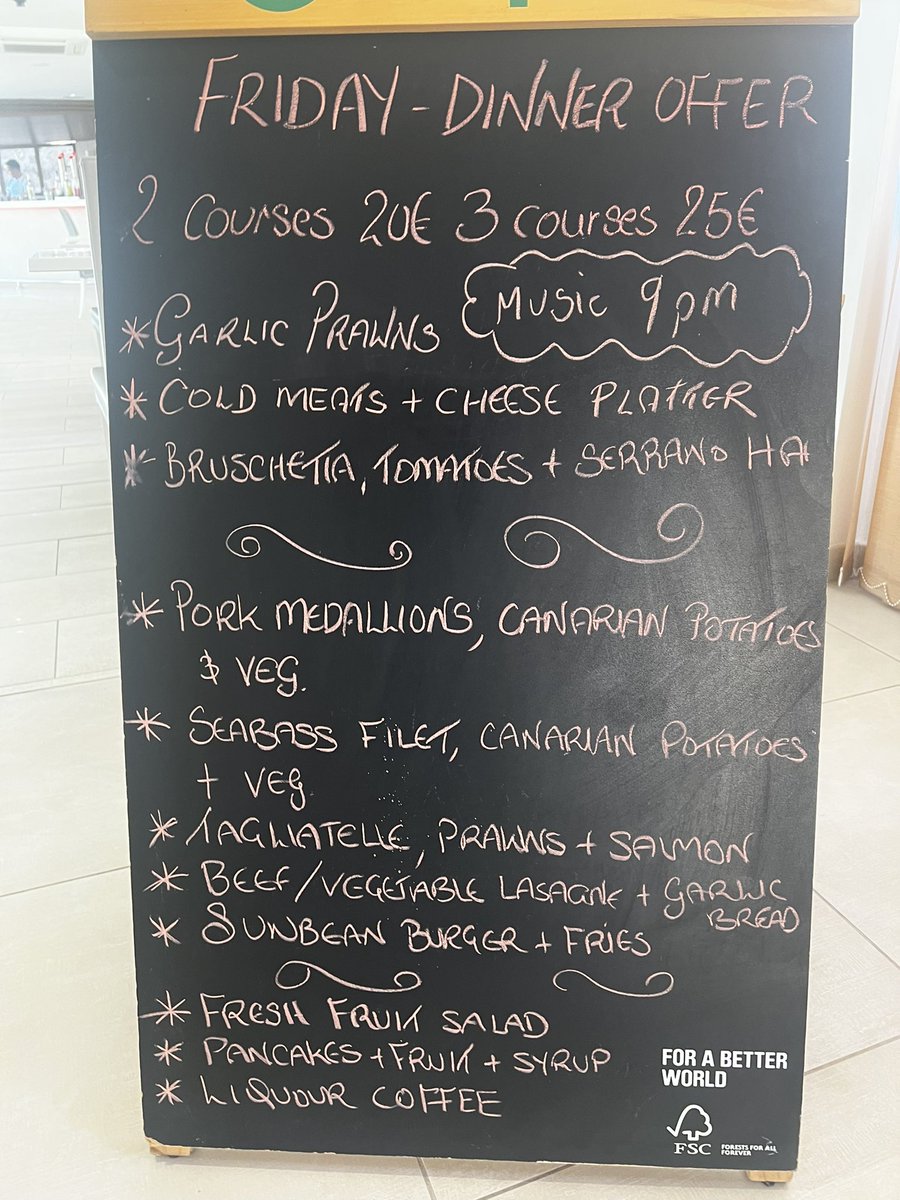 FRIDAY - DINNER OFFER
2 Courses 20€ 3 courses 25€
Music 9pm
* GARLIC PRAWNS
* COLD MEATS + CHEESE PLATTER
* BRUSCHETTA, TOMATOES + SERRANO HA
* PORK MEDALLIONS, CANARIAN POTATOES
& VEG.
* SEABASS FILET, CANARIAN POTATOES
+ VEG
* TAGLIATELLE, PRAWNS + SALMON
* BEEF/VEGETABLE LASAGNE + GARLIC
BREAD
* SUNBEAN BURGER + FRIES
* FRESH FRUIT SALAD
* PANCAKES + FRUIT + SYRUP
* LIQUOUR COFFEE
FOR A BETTER
WORLD
FSC
FORESTS FOR ALL
FOREVER